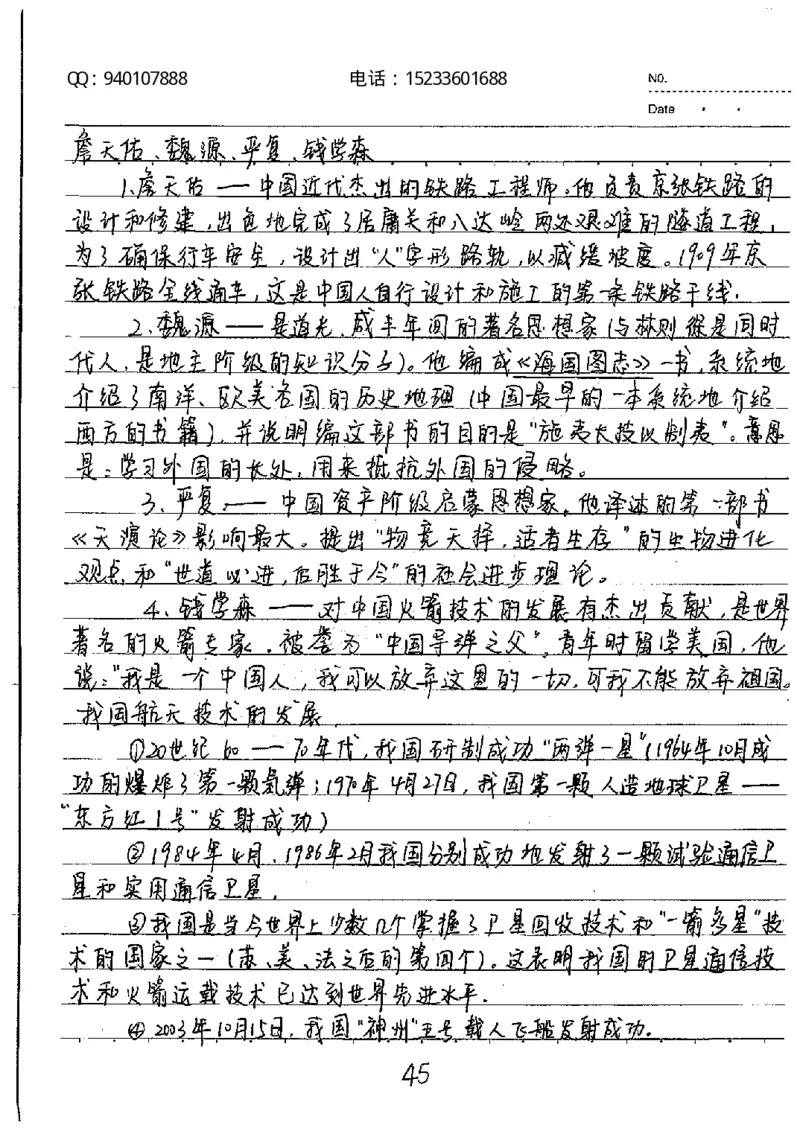 QQ：940107888 电话：15233601688 NO.
Date
詹天佑、魏源、严复、钱学森
1.詹天佑——中国近代杰出的铁路工程师。他负责京张铁路的
设计和修建，出色地完成了居庸关和八达岭两处艰难的隧道工程，
为了确保行车安全，设计出"人"字形路轨，以减缓坡度。1909年京
张铁路全线通车，这是中国人自行设计和施工的第一条铁路干线．
2.魏源——是道光、咸丰年间的著名思想家（与林则徐是同时
代人，是地主阶级的知识分子）。他编成《海国图志》一书，系统地
介绍了南洋、欧美各国的历史地理（中国最早的一本系统地介绍
西方的书籍），并说明编这部书的目的是"施夷长技以制夷"。意思
是：学习外国的长处，用来抵抗外国的侵略。
3、严复．——中国资产阶级启蒙思想家。他译述的第一部书
《天演论》影响最大。提出"物竞天择，适者生存"的生物进化
观点和"世道必进，后胜于今"的社会进步理论。
4、钱学森——对中国火箭技术的发展有杰出贡献，是世界
著名的火箭专家．被誉为"中国导弹之父"。青年时留学美国，他
说："我是一个中国人，我可以放弃这里的一切，可我不能放弃祖国。
我国航天技术的发展．
①20世纪60——70年代，我国研制成功"两弹一星"（1964年10月成
功的爆炸了第一颗氢弹；1970年4月27日，我国第一颗人造地球卫星——
"东方红1号"发射成功）
②1984年4月、1986年2月我国分别成功地发射了一颗试验通信卫
星和实用通信卫星．
③我国是当今世界上少数几个掌握了卫星回收技术和"一箭多星"技
术的国家之一（苏、美、法之后的第四个）。这表明我国的卫星通信技
术和火箭运载技术已达到世界先进水平．
④2003年10月15日，我国"神州"五号载人飞船发射成功．
45